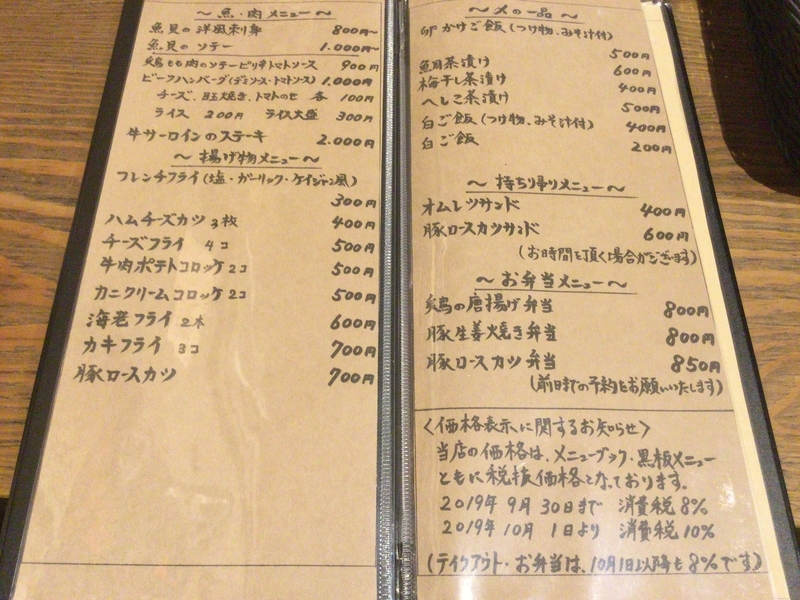 ～魚・肉メニュー～
魚貝の洋風刺身 800円～
魚貝のソテー 1.000円～
鶏もも肉のソテーピリ辛トマトソース 900円
ビーフハンバーグ(デミソース・トマトソース) 1.000円
チーズ、目玉焼き、トマトのせ 各 100円
ライス 200円 ライス大盛 300円
牛サーロインのステーキ 2.000円
～揚げ物メニュー～
フレンチフライ(塩・ガーリック・ケイジャン風)
300円
ハムチーズカツ 3枚 400円
チーズフライ 4コ 500円
牛肉ポテトコロッケ 2コ 500円
カニクリームコロッケ 2コ 500円
海老フライ 2本 600円
カキフライ 3コ 700円
豚ロースカツ 700円
～〆の一品～
卵かけご飯(つけ物、みそ汁付)
500円
鯛茶漬け 600円
梅干し茶漬け 400円
へしこ茶漬け 500円
白ご飯(つけ物、みそ汁付) 400円
白ご飯 200円
～持ち帰りメニュー～
オムレツサンド 400円
豚ロースカツサンド 600円
(お時間を頂く場合がございます)
～お弁当メニュー～
鶏の唐揚げ弁当 800円
豚生姜焼き弁当 800円
豚ロースカツ弁当 850円
(前日までの予約をお願いいたします)
〈価格表示に関するお知らせ〉
当店の価格は、メニューブック・黒板メニュー
ともに税抜価格となっております。
2019年9月30日まで 消費税8%
2019年10月1日より 消費税10%
(テイクアウト・お弁当は、10月1日以降も8%です)